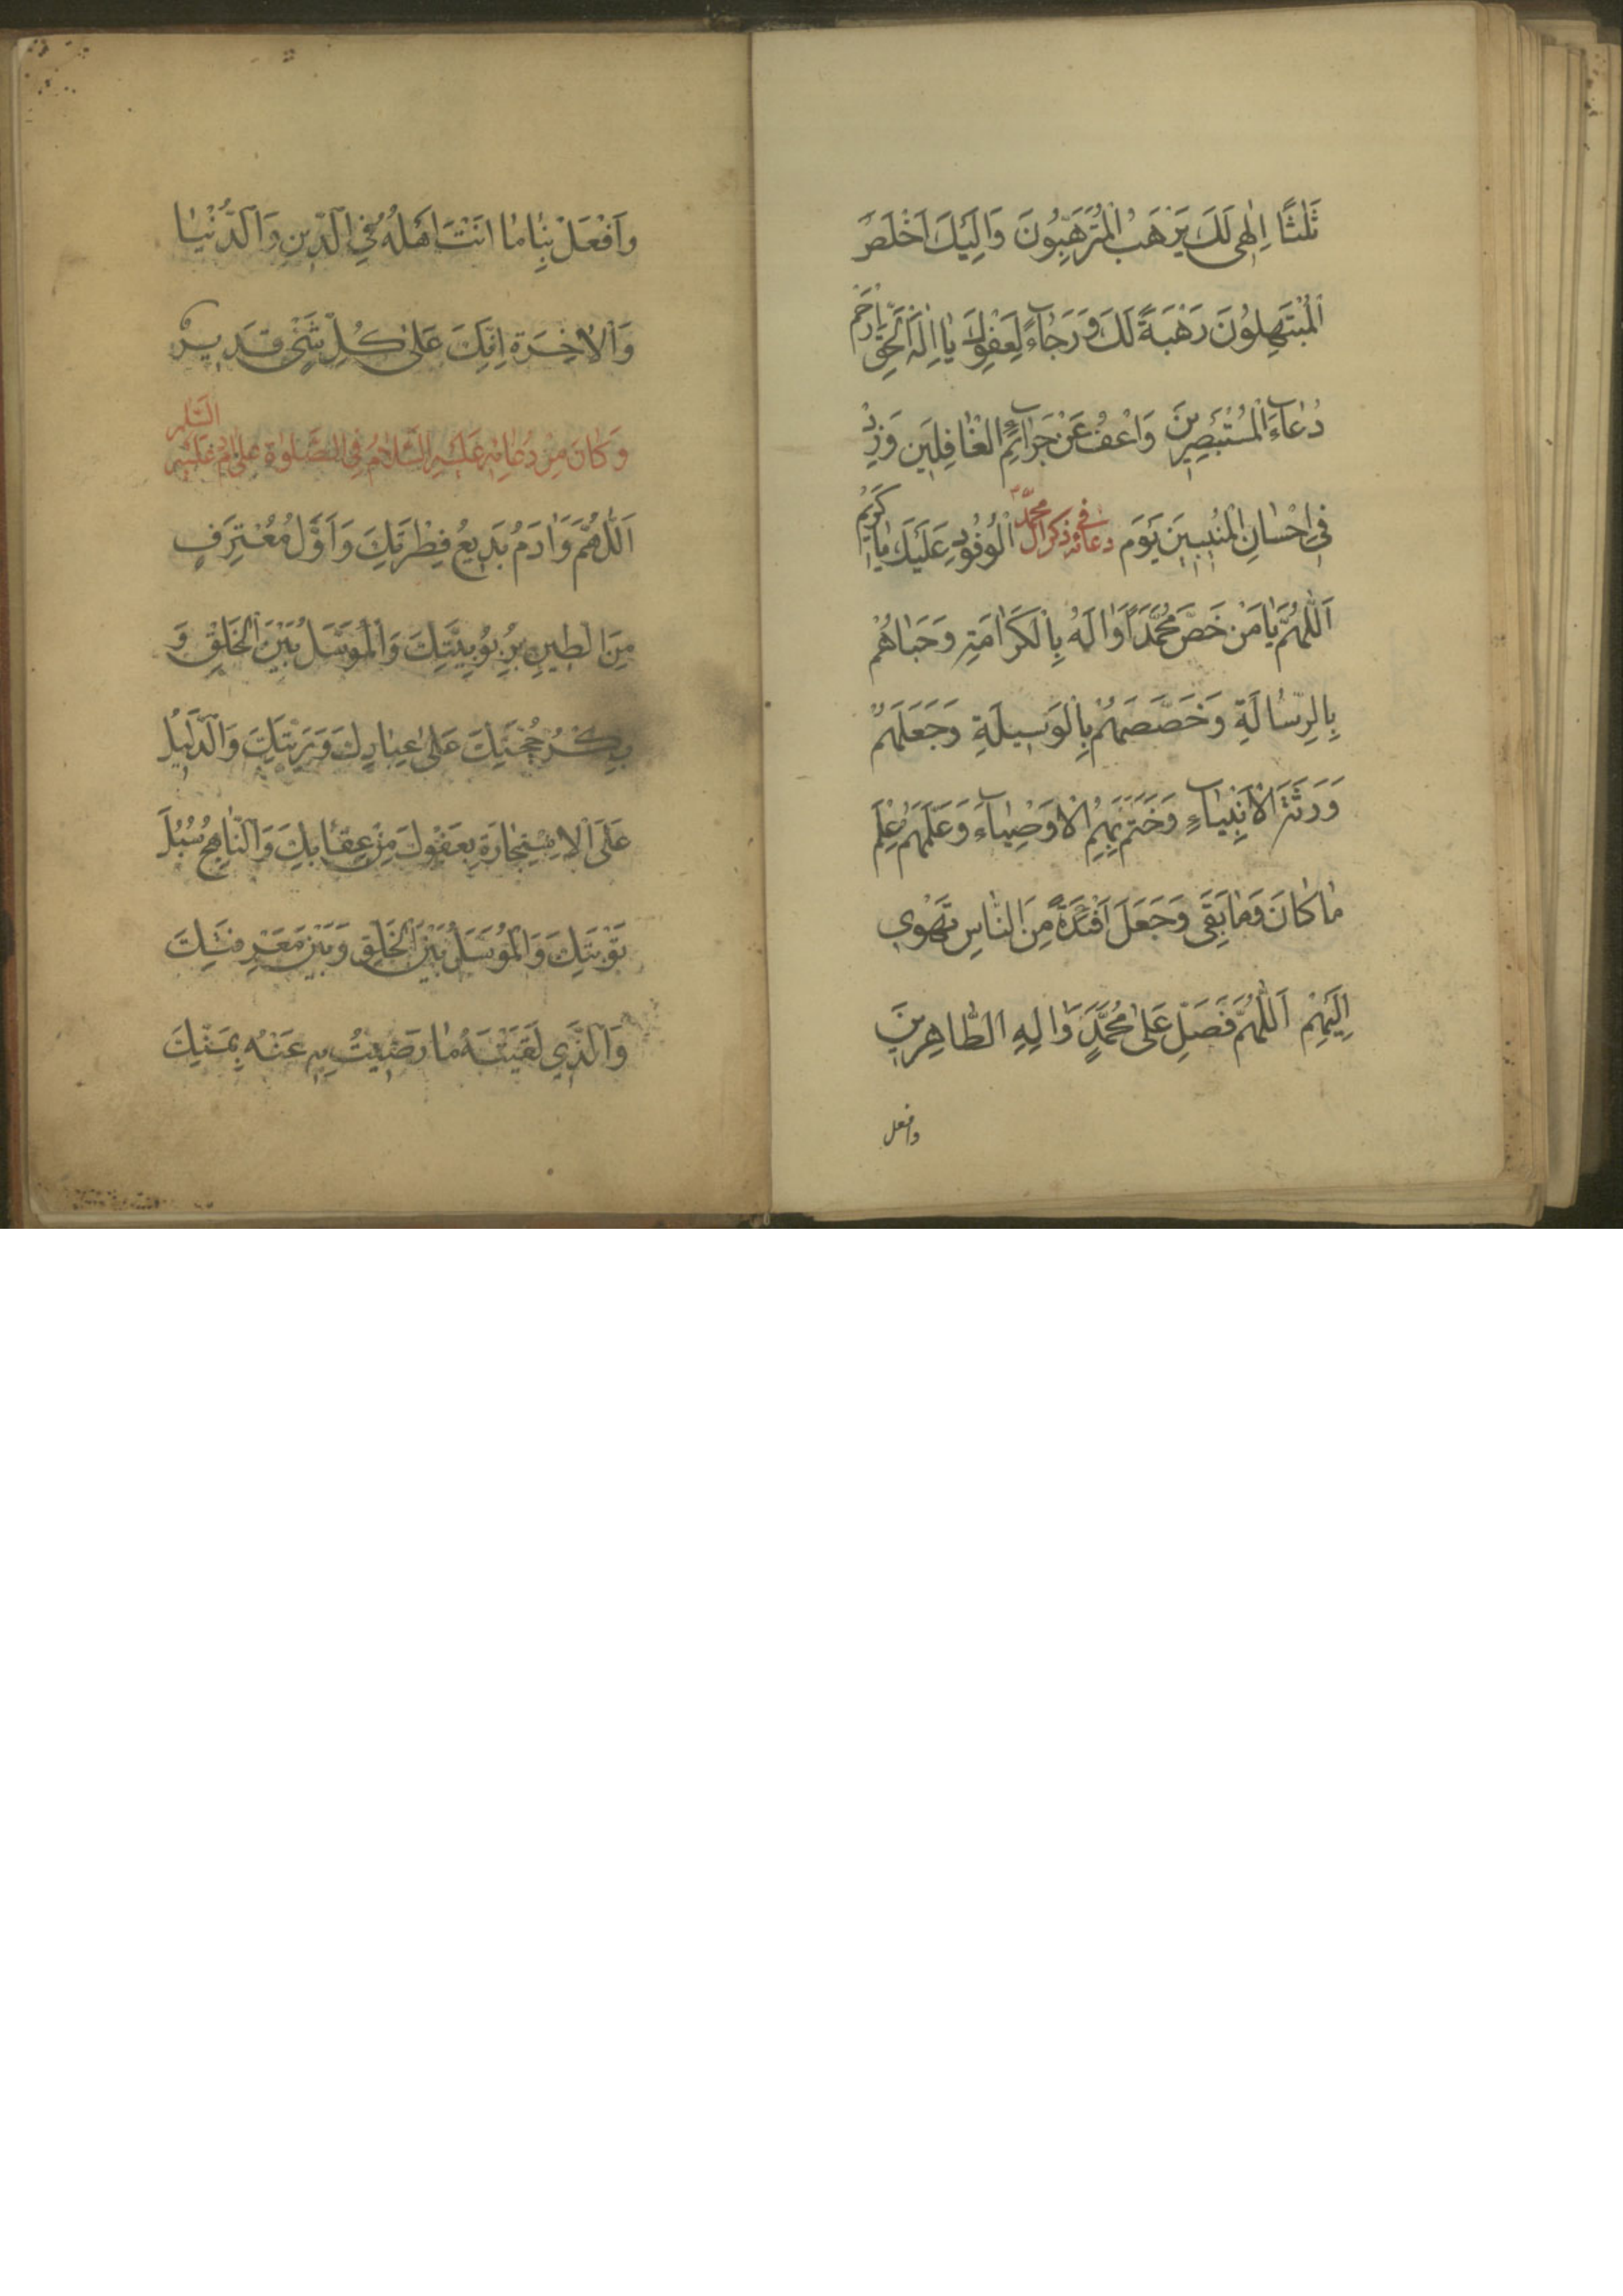 ثَلٰثًا اِلٰهِی لَكَ يَرْهَبُ الْمُتَرَهِّبُونَ وَاِلَيْكَ اَخْلَصَ
الْمُبْتَهِلُونَ رَهْبَةً لَكَ وَرَجٰاءً لِعَفْوِكَ يٰا اِلٰهَ الْحَقِّ ارْحَمْ
دُعٰاءَ الْمُسْتَبْصِرِينَ وَاعْفُ عَنْ جَرٰائِمِ الْغٰافِلِينَ وَزِدْ
فِي اِحْسٰانِ الْمُنِيبِينَ يَوْمَ الْوُفُودِ عَلَيْكَ يٰا كَرِيمُ
دعائه في ذكر آل محمد
اَللّٰهُمَّ يٰا مَنْ خَصَّ مُحَمَّدًا وَاٰلَهُ بِالْكَرٰامَةِ وَحَبٰاهُمْ
بِالرِّسٰالَةِ وَخَصَّصَهُمْ بِالْوَسِيلَةِ وَجَعَلَهُمْ
وَرَثَةَ الْاَنْبِيٰاءِ وَخَتَمَ بِهِمُ الْاَوْصِيٰاءَ وَعَلَّمَهُمْ عِلْمَ
مٰا كٰانَ وَمٰا بَقِيَ وَجَعَلَ اَفْئِدَةً مِنَ النّٰاسِ تَهْوِي
اِلَيْهِمْ اَللّٰهُمَّ فَصَلِّ عَلٰى مُحَمَّدٍ وَاٰلِهِ الطّٰاهِرِينَ
وافعل
وَافْعَلْ بِنٰا مٰا اَنْتَ اَهْلُهُ فِي الدِّينِ وَالدُّنْيٰا
وَالْاٰخِرَةِ اِنَّكَ عَلٰى كُلِّ شَيْءٍ قَدِيرٌ
وَكٰانَ مِنْ دُعٰائِهِ عَلَيْهِ السَّلٰامُ فِي الصَّلٰوةِ عَلٰى اٰدَمَ عَلَيْهِ السَّلٰم
اَللّٰهُمَّ وَاٰدَمُ بَدِيعُ فِطْرَتِكَ وَاَوَّلُ مُعْتَرِفٍ
مِنَ الطِّينِ بِرُبُوبِيَّتِكَ وَالْمُوَسَّلُ بَيْنَ الْخَلْقِ وَ
بِكْرُ حُجَّتِكَ عَلٰى عِبٰادِكَ وَبَرِيَّتِكَ وَالدَّلِيلُ
عَلَى الْاِسْتِجٰارَةِ بِعَفْوِكَ مِنْ عِقٰابِكَ وَالنّٰاهِجُ سُبُلَ
تَوْبَتِكَ وَالْمُوَسَّلُ بَيْنَ الْخَلْقِ وَبَيْنَ مَعْرِفَتِكَ
وَالَّذِي لَقَّيْتَهُ مٰا رَضِيتَ بِهِ عَنْهُ بِمَنِّكَ